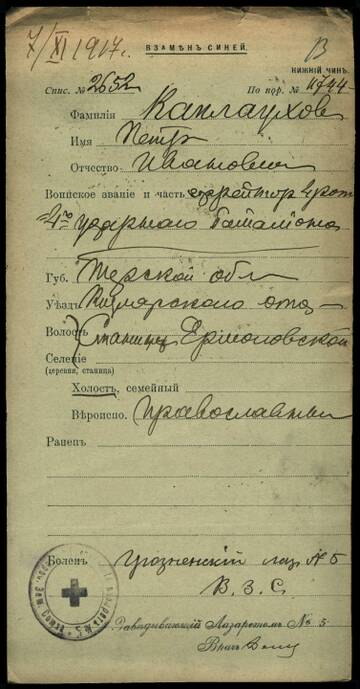 7/XI 1917 г.
ВЗАМѢНЪ СИНЕЙ.
В
НИЖНІЙ ЧИНЪ.
Спис. № 2652 По пор. №
Фамилія Каплауховъ
Имя Петръ
Отчество Ивановичъ
Воинское званіе и часть ефрейторъ 4 роты
4го ударнаго баталіона
Губ. Терской обл
Уѣздъ Кизлярскаго отд
Волость Станицы Ермоловской
Селеніе
(деревня, станица)
Холостъ, семейный
Вѣроисп. Православный
Раненъ
Боленъ Грозненскій лаз. № 5
В. З. С.
Завѣдывающій Лазаретомъ № 5
Врачъ